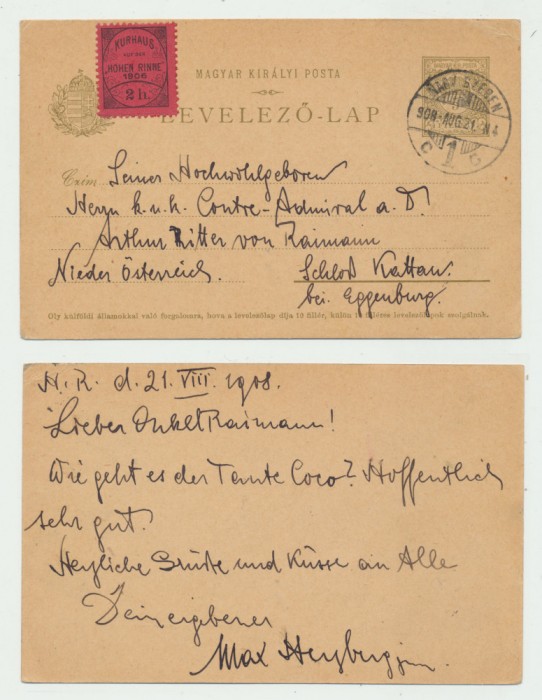 KURHAUS
AUF DER
HOHEN RINNE
1906
2 h.
MAGYAR KIRÁLYI POSTA
LEVELEZŐ-LAP
NAGY SZEBEN
908 AUG. 21. N4
C 1 G
Czím: Seiner Hochwohlgeboren
Herrn k.u.k. Contre-Admiral a. D.
Arthur Ritter von Raimann
Nieder Österreich. Schloß Kattau.
bei Eggenburg.
Oly külföldi államokkal való forgalomra, hova a levelezőlap díja 10 fillér, külön 10 filléres levelezőlapok szolgálnak.
H. R. d. 21. VIII. 1908.
Lieber Onkel Raimann!
Wie geht es der Tante Coco? Hoffentlich
sehr gut.
Herzliche Grüße und Küsse an Alle
Dein ergebener
Max